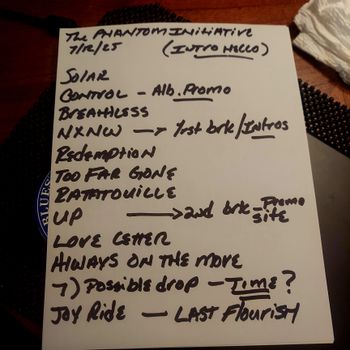 The PHANTOM INITIATIVE
7/12/25 (INTRO HELLO)
SOLAR
CONTROL - Alb. Promo
BREATHLESS
NXNW → 1rst brk/Intros
Redemption
TOO FAR GONE
RATATOUILLE
UP → 2nd brk - Promo site
LOVE LETTER
ALWAYS ON THE MOVE
7) Possible drop - TIME?
JOY RIDE - LAST Flourish
BLUES